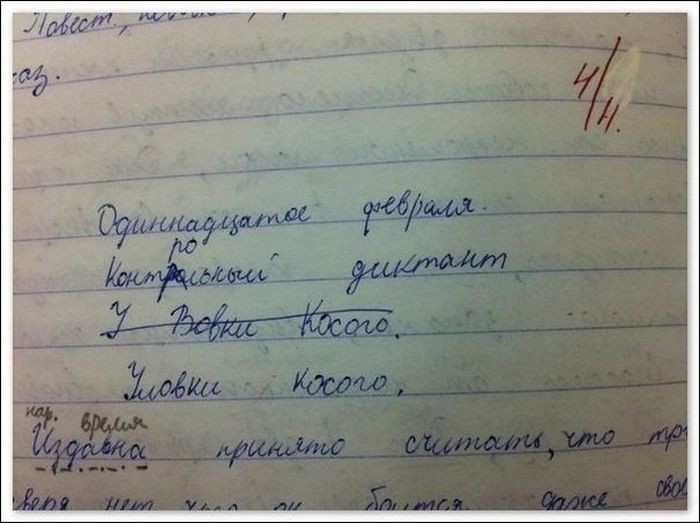 Повест,
аз.
4/4.
Одиннадцатое февраля.
Контрольный диктант
У Вовки Косого.
Уловки косого.
нар. время
Издавна принято считать, что тр
зверя нет, что он боится даже сво